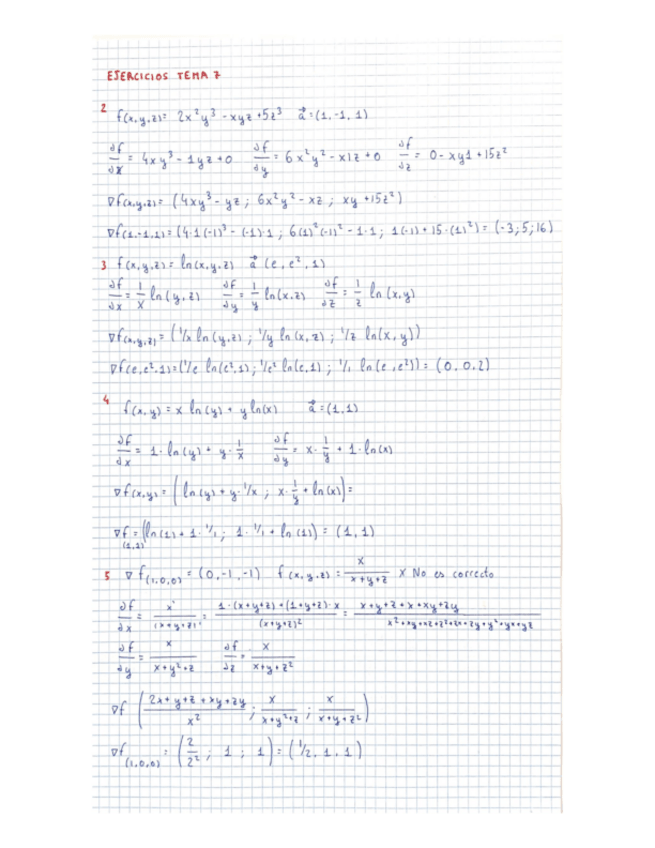 EJERCICIOS TEMA 7
2 f(x,y,z)= 2x²y³ - xyz + 5z³ a⃗=(1,-1,1)
∂f/∂x = 4xy³ - 1yz + 0 ∂f/∂y = 6x²y² - x1z + 0 ∂f/∂z = 0 - xy1 + 15z²
∇f(x,y,z)= (4xy³ - yz ; 6x²y² - xz ; xy + 15z²)
∇f(1,-1,1)= (4·1(-1)³ - (-1)·1 ; 6(1)²(-1)² - 1·1 ; 1(-1) + 15·(1)²) = (-3;5;16)
3 f(x,y,z) = ln(x,y,z) a⃗ (e, e², 1)
∂f/∂x = 1/x ln(y,z) ∂f/∂y = 1/y ln(x,z) ∂f/∂z = 1/z ln(x,y)
∇f(x,y,z) = (1/x ln(y,z) ; 1/y ln(x,z) ; 1/z ln(x,y))
∇f(e,e²,1)=(1/e ln(e²,1) ; 1/e² ln(e,1) ; 1/1 ln(e,e²)) = (0,0,2)
4 f(x,y) = x ln(y) + y ln(x) a⃗=(1,1)
∂f/∂x = 1·ln(y) + y·1/x ∂f/∂y = x·1/y + 1·ln(x)
∇f(x,y) = (ln(y) + y·1/x ; x·1/y + ln(x)) =
∇f(1,1) = (ln(1) + 1·1/1 ; 1·1/1 + ln(1)) = (1,1)
5 ∇f(1,0,0) = (0,-1,-1) f(x,y,z) = x/(x+y+z) X No es correcto
∂f/∂x = x'/(x+y+z)' = (1·(x+y+z) + (1+y+z)·x)/(x+y+z)² = (x+y+z+x+xy+zy)/
∂f/∂y = x/(x+y²+z) ∂f/∂z = x/(x+y+z²)
∇f ((2x+y+z+xy+zy)/x² ; x/(x+y²+z) ; x/(x+y+z²))
∇f(1,0,0) = (2/2² ; 1 ; 1) = (1/2, 1, 1)